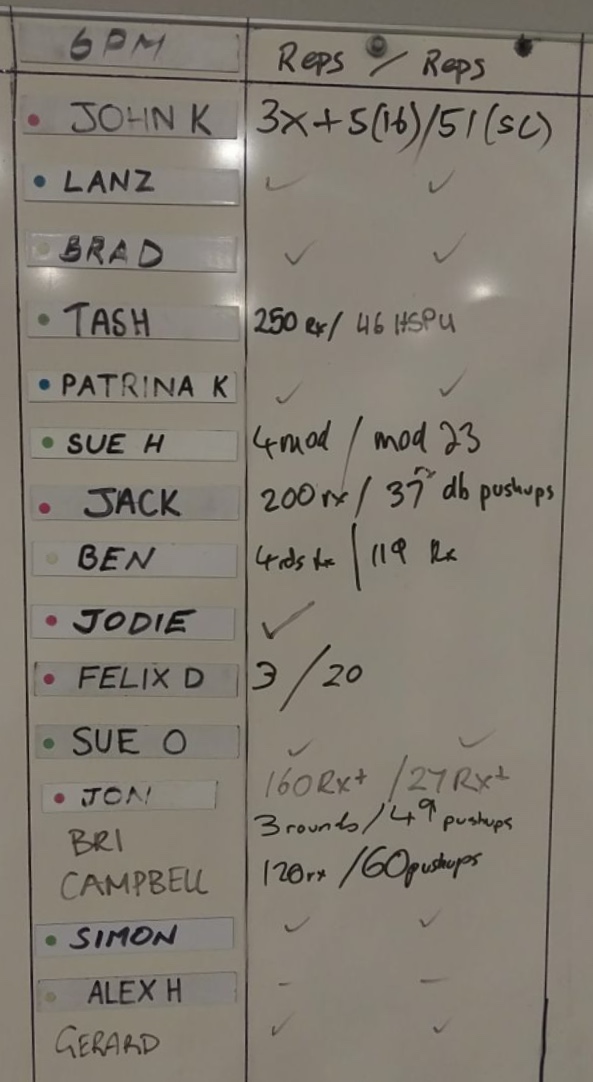 6PM Reps / Reps
JOHN K 3x+5(16)/51(SC)
LANZ ✓ ✓
BRAD ✓ ✓
TASH 250 Rx/ 46 HSPU
PATRINA K ✓ ✓
SUE H 4mod / mod 23
JACK 200 rx / 37 db pushups
BEN 4rds Rx | 119 Rx
JODIE ✓
FELIX D 3 / 20
SUE O ✓ ✓
JON 160Rx+ /27Rx+
BRI 3rounds/49 pushups
CAMPBELL 120rx /60pushups
SIMON ✓ ✓
ALEX H - -
GERARD ✓ ✓